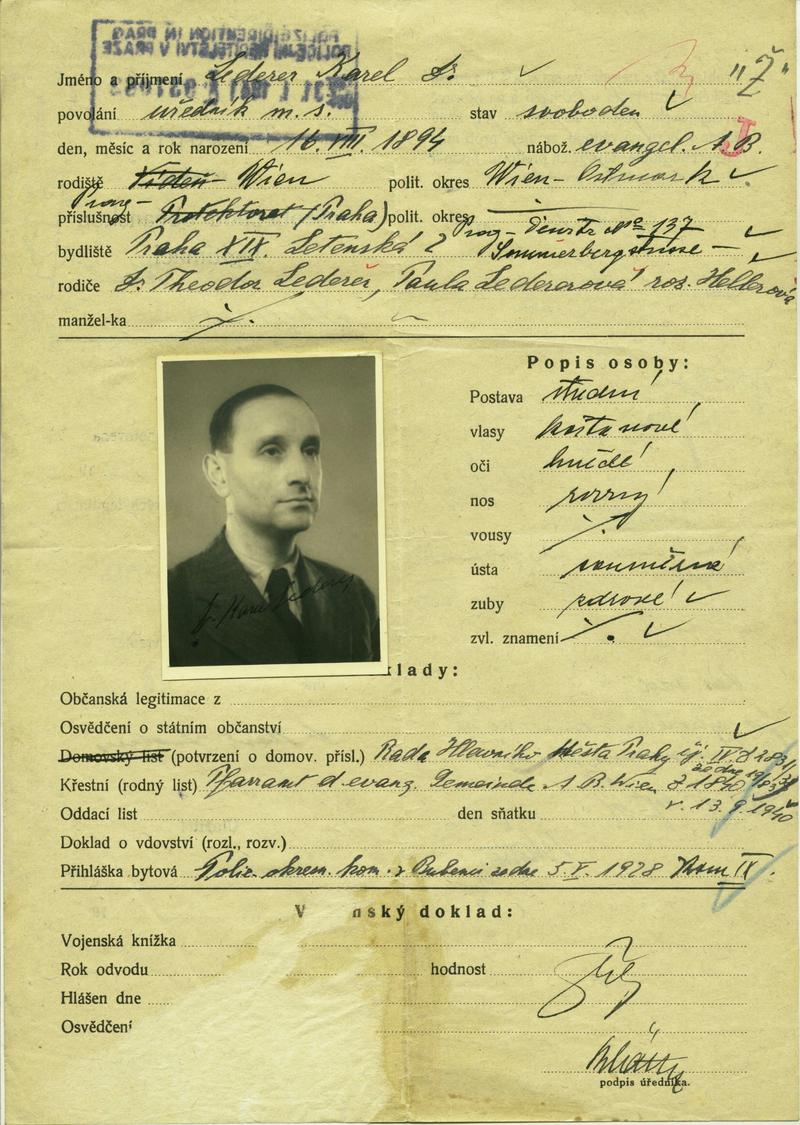 POLIZEIDIREKTION IN PRAG
POLICEJNÍ ŘEDITELSTVÍ V PRAZE
Jméno a příjmení Lederer Karel Dr. "Ž"
povolání úředník m. s. stav svoboden
J
den, měsíc a rok narození 16. VIII. 1894 nábož. evangel. A.B.
rodiště Vídeň - Wien polit. okres Wien - Ostmark
Prag -
příslušnost Protektorat (Praha) polit. okres
Prag - No 137
bydliště Praha XIX. Letenská 2 Sommerbergstrasse
rodiče Dr. Theodor Lederer, Paula Ledererová roz. Hellerová
manžel-ka
Popis osoby:
Postava střední
vlasy kaštanové
oči hnědé
nos rovný
vousy
ústa souměrná
zuby zdravé
zvl. znamení
Dr. Karel Lederer
klady:
Občanská legitimace z
Osvědčení o státním občanství
Domovský list (potvrzení o domov. přísl.) Rada Hlavního Města Prahy čj. IV.
Křestní (rodný list) Pfarramt d. evang. Gemeinde A.B. Wien
v. 13. 9. 1940
Oddací list den sňatku
Doklad o vdovství (rozl., rozv.)
Přihláška bytová Polic. okres. kom. v Bubenči ze dne 5. V. 1928 Kom IX.
V nský doklad:
Vojenská knížka
Rok odvodu hodnost
Hlášen dne
Osvědčení
podpis úředníka.